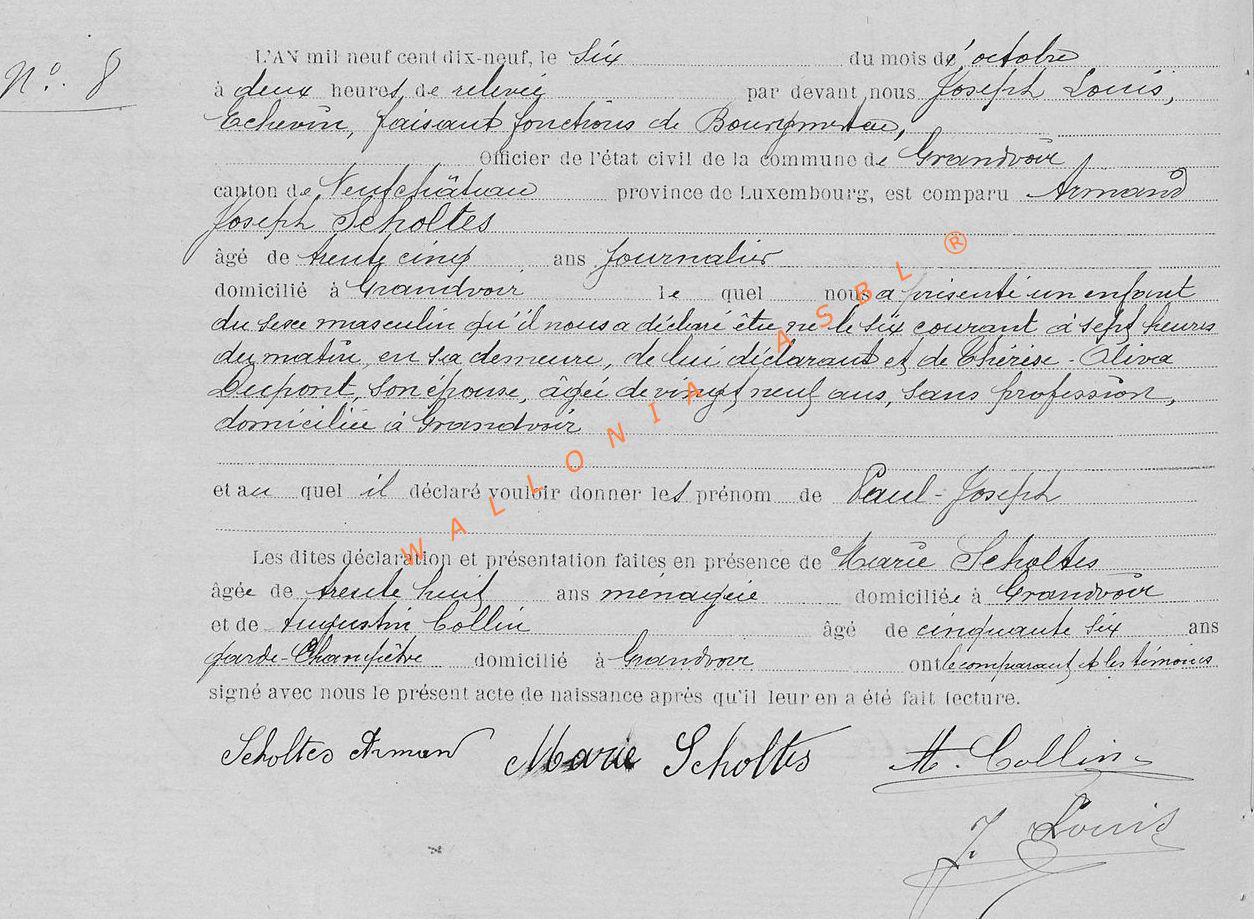 N°. 8
L'AN mil neuf cent dix-neuf, le six du mois d'octobre
à deux heures de relevée par devant nous Joseph Louis,
Echevin, faisant fonctions de Bourgmestre,
Officier de l'état civil de la commune de Grandvoir
canton de Neufchâteau province de Luxembourg, est comparu Armand
Joseph Scholtes
âgé de trente cinq ans journalier
domicilié à Grandvoir le quel nous a présenté un enfant
du sexe masculin qu'il nous a déclaré être né le six courant à sept heures
du matin, en sa demeure, de lui déclarant et de Thérèse-Oliva
Dupont, son épouse, âgée de vingt neuf ans, sans profession,
domiciliée à Grandvoir
et au quel il déclaré vouloir donner les prénom de Paul-Joseph
Les dites déclaration et présentation faites en présence de Marie Scholtes
âgée de trente huit ans ménagère domiciliée à Grandvoir
et de Augustin Collin âgé de cinquante six ans
garde-Champêtre domicilié à Grandvoir ont le comparant et les témoins
signé avec nous le présent acte de naissance après qu'il leur en a été fait lecture.
Scholtes Armand Marie Scholtes A. Collin
J. Louis
WALLONIA ASBL ®